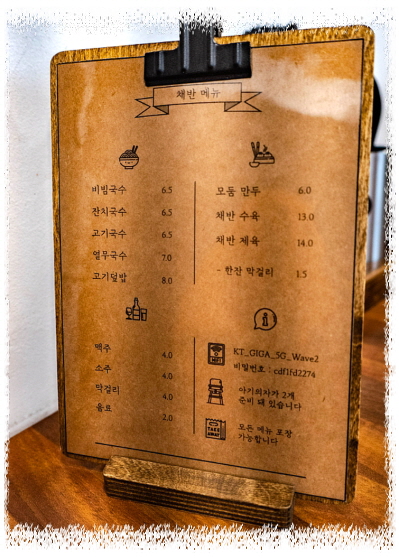 채반 메뉴
비빔국수 6.5
잔치국수 6.5
고기국수 6.5
열무국수 7.0
고기덮밥 8.0
모둠 만두 6.0
채반 수육 13.0
채반 제육 14.0
- 한잔 막걸리 1.5
맥주 4.0
소주 4.0
막걸리 4.0
음료 2.0
KT_GIGA_5G_Wave2
비밀번호 : cdf1fd2274
아기의자가 2개
준비 돼 있습니다
TAKE
AWAY
모든 메뉴 포장
가능합니다